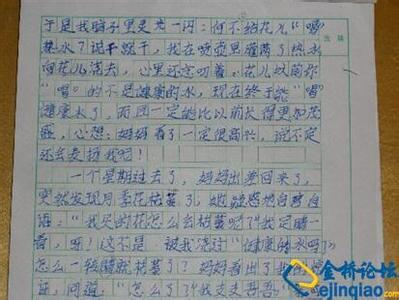 于是我脑子里灵光一闪：何不给花儿“喝”
热水？说干就干，我在喷壶里灌满了热水
向花儿浇去，心里还念叨着：花儿以前你
“喝”的不是健康的水，现在终于能“喝”
健康水了，而且一定的比以前长得更加茂
盛，心想：妈妈看了一定很高兴，说不定
还会表扬我呢！
一个星期过去了，妈妈出差回来了，
突然发现月季花枯萎了，她疑惑地自言自
语：“我买的花怎么会枯萎呢？”我定睛一
看，呀！这不是被我浇过“健康的水吗？
怎么一转眼就枯萎了？妈妈看出了我的
证，问道：“怎么了？”我支支吾吾
金桥论坛
ejinqiao.com